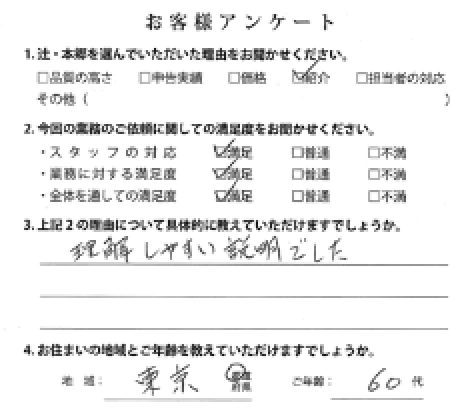 お客様アンケート
1. 辻・本郷を選んでいただいた理由をお聞かせください。
□品質の高さ □申告実績 □価格 ☑紹介 □担当者の対応
その他( )
2. 今回の業務のご依頼に関しての満足度をお聞かせください。
・スタッフの対応 ☑満足 □普通 □不満
・業務に対する満足度 ☑満足 □普通 □不満
・全体を通しての満足度 ☑満足 □普通 □不満
3. 上記2の理由について具体的に教えていただけますでしょうか。
理解しやすい説明でした
4. お住まいの地域とご年齢を教えていただけますでしょうか。
地域: 東京 都道府県 ご年齢: 60代